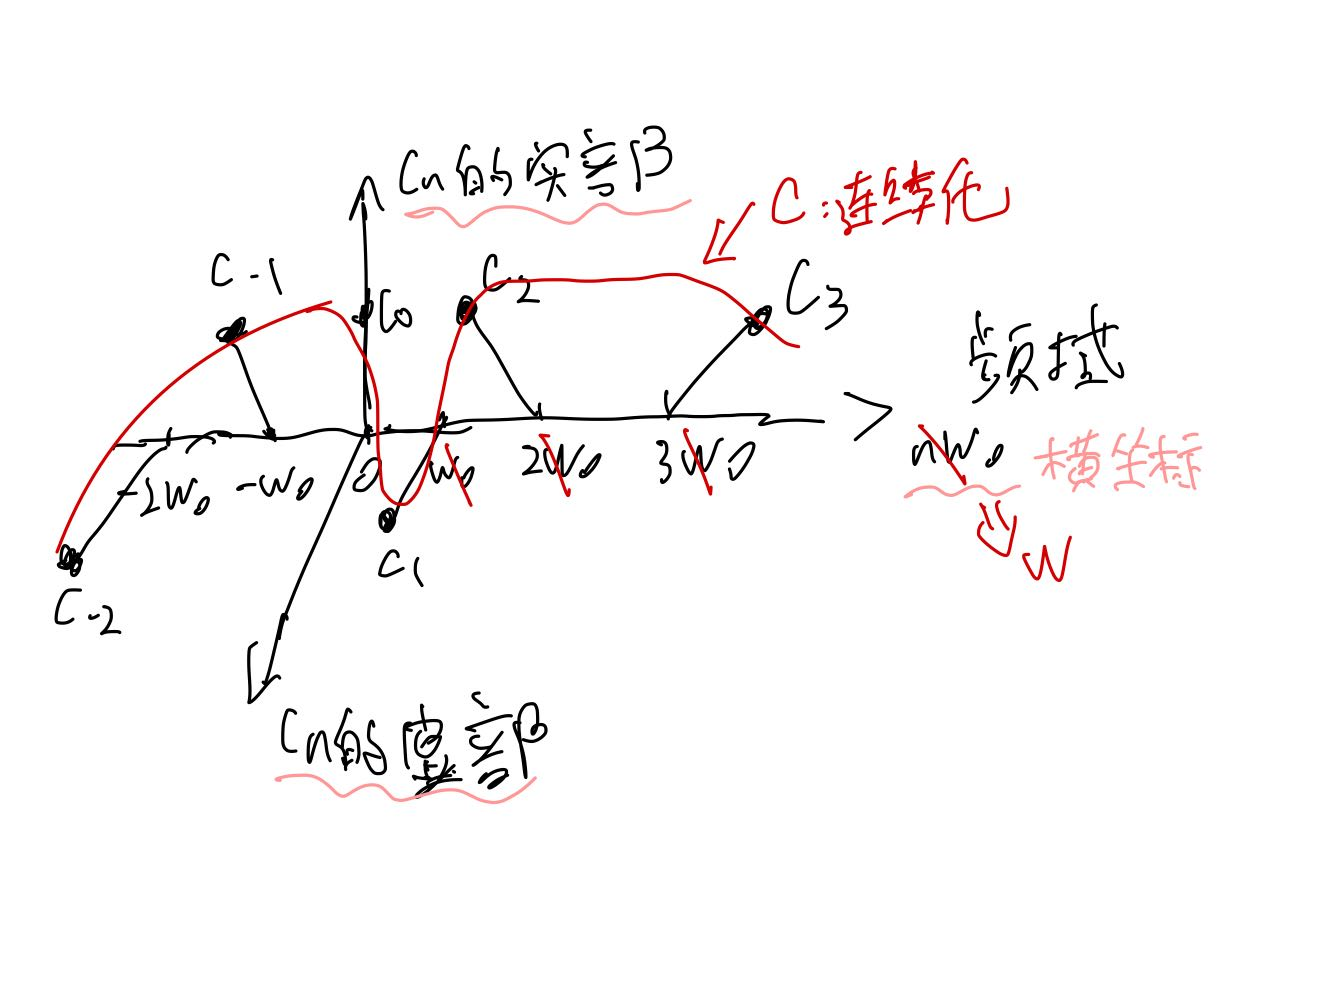 Cn的实部
C:连续化
C-1
C0
C2
C3
频域
-2w0
-w0
0
w0
2w0
3w0
nw0
横坐标
w
C1
C-2
Cn的虚部